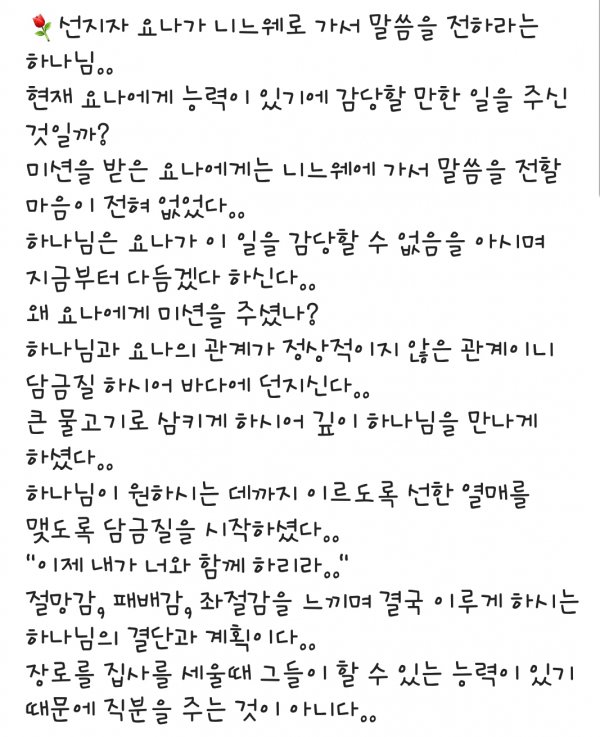 🌹선지자 요나가 니느웨로 가서 말씀을 전하라는
하나님。。
현재 요나에게 능력이 있기에 감당할 만한 일을 주신
것일까?
미션을 받은 요나에게는 니느웨에 가서 말씀을 전할
마음이 전혀 없었다。。
하나님은 요나가 이 일을 감당할 수 없음을 아시며
지금부터 다듬겠다 하신다。。
왜 요나에게 미션을 주셨나?
하나님과 요나의 관계가 정상적이지 않은 관계이니
담금질 하시어 바다에 던지신다。。
큰 물고기로 삼키게 하시어 깊이 하나님을 만나게
하셨다。。
하나님이 원하시는 데까지 이르도록 선한 열매를
맺도록 담금질을 시작하셨다。。
"이제 내가 너와 함께 하리라。。"
절망감, 패배감, 좌절감을 느끼며 결국 이루게 하시는
하나님의 결단과 계획이다。。
장로를 집사를 세울때 그들이 할 수 있는 능력이 있기
때문에 직분을 주는 것이 아니다。。